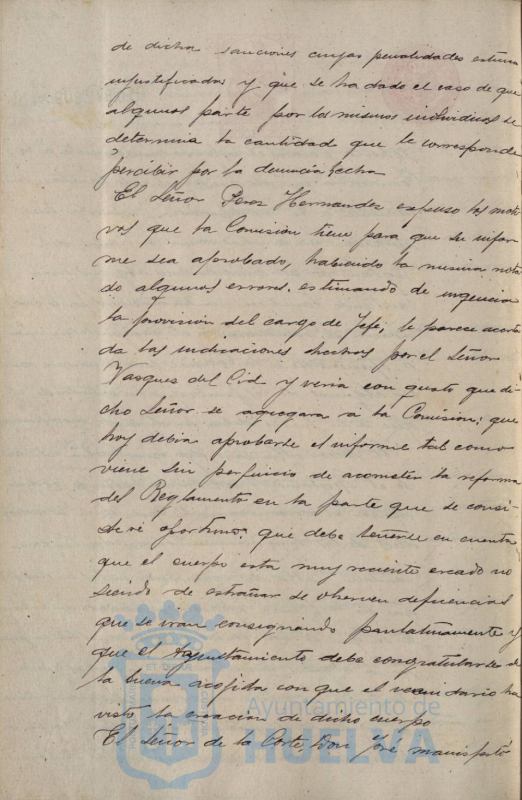 de dicha sanciones cuyas penalidades estima
injustificadas y que se ha dado el caso de que
algunos parte por los mismos individuos se
determina la cantidad que le corresponde
percibir por la denuncia hecha
El Señor Perez Hernandez expuso los moti
vos que la Comision tiene para que su infor
me sea aprobado, habiendo la misma nota
do algunos errores. estimando de urgencia
la provisión del cargo de Jefe; le parece acerta
da las indicaciones hechas por el Señor
Vasques del Cid y veria con gusto que di
cho Señor se agregara a la Comision; que
hoy debia aprobarse el informe tal como
viene sin perjuicio de acometer la reforma
del Reglamento en la parte que se consi
dere oportuno; que debe tenerse en cuenta
que el cuerpo esta muy reciente creado no
siendo de estrañar se observen deficiencias
que se iran consignando paulatinamente y
que el Ayuntamiento debe congratularse de
la buena acojida con que el vecindario ha
visto la creacion de dicho cuerpo
El Señor de la Corte, Don José manifestó
Ayuntamiento de
HUELVA